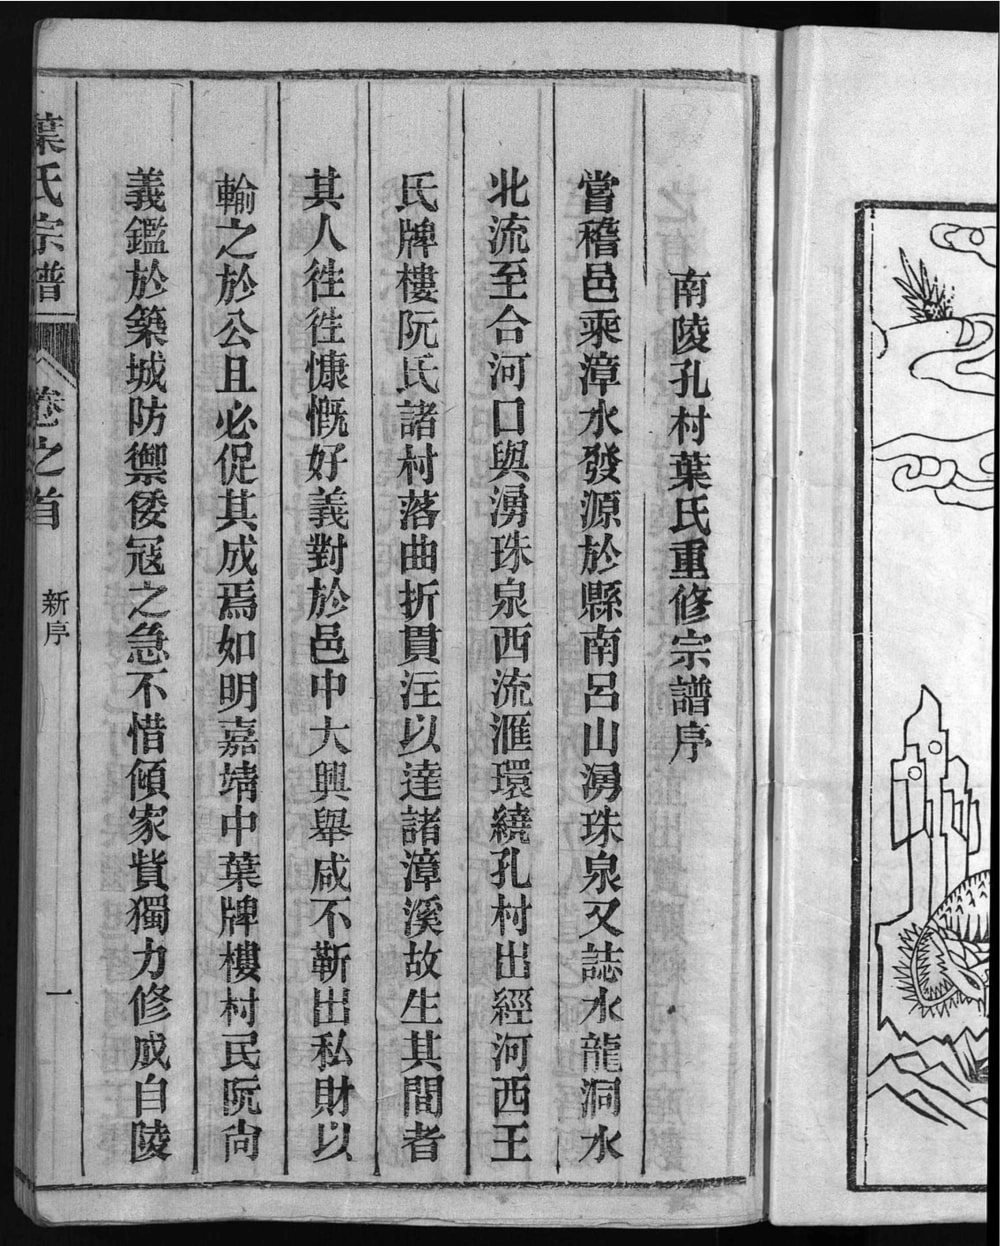 南陵孔村葉氏重修宗譜序
嘗稽邑乘漳水發源於縣南呂山湧珠泉又誌水龍洞水
北流至合河口與湧珠泉西流滙環繞孔村出經河西王
氏牌樓阮氏諸村落曲折貫注以達諸漳溪故生其間者
其人徃徃慷慨好義對於邑中大興舉咸不靳出私財以
輸之於公且必促其成焉如明嘉靖中葉牌樓村民阮尙
義鑑於築城防禦倭冦之急不惜傾家貲獨力修成自陵
葉氏宗譜
卷之首
新序
一